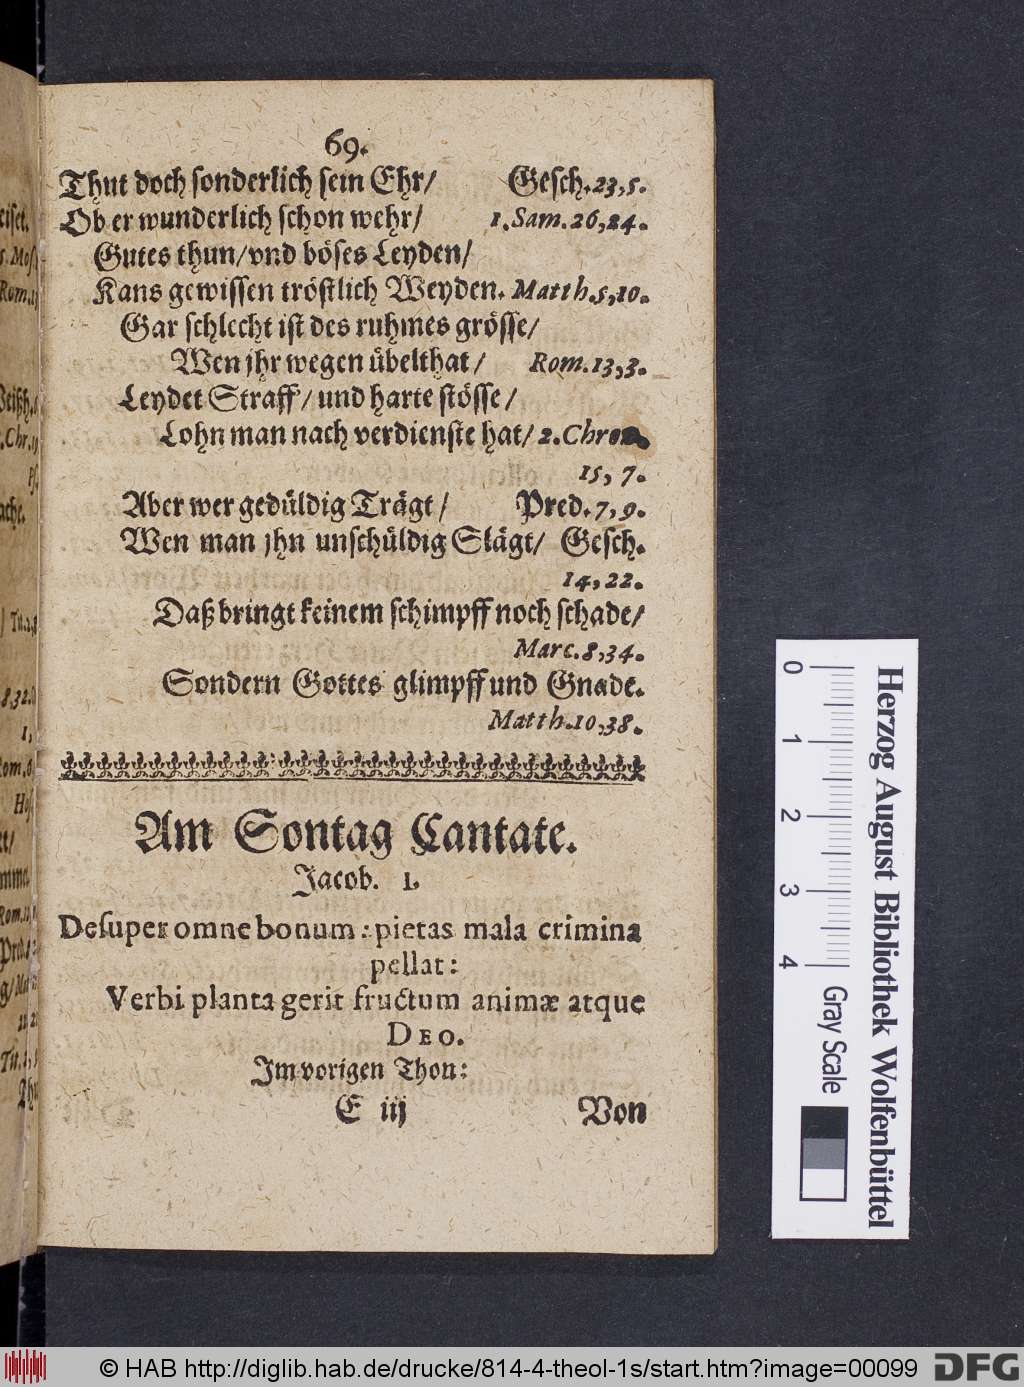 69.
Thut doch sonderlich sein Ehr/ Gesch.23,5.
Ob er wunderlich schon wehr/ 1.Sam.26,24.
Gutes thun/vnd böses Leyden/
Kans gewissen tröstlich Weyden. Matth.5,10.
Gar schlecht ist des ruhmes grösse/
Wen jhr wegen übelthat/ Rom.13,3.
Leydet Straff/und harte stösse/
Lohn man nach verdienste hat/ 2.Chron.
15, 7.
Aber wer gedüldig Trägt/ Pred.7,9.
Wen man jhn unschüldig Slägt/ Gesch.
14,22.
Daß bringt keinem schimpff noch schade/
Marc.8,34.
Sondern Gottes glimpff und Gnade.
Matth.10,38.
Am Sontag Cantate.
Jacob. 1.
Desuper omne bonum: pietas mala crimina
pellat:
Verbi planta gerit fructum animæ atque
DEO.
Im vorigen Thon:
E iij Von
eiset.
Rom.
Chr.
ache.
8.32.
1,
Herzog August Bibliothek Wolfenbüttel
0 1 2 3 4 Gray Scale
© HAB http://diglib.hab.de/drucke/814-4-theol-1s/start.htm?image=00099
DFG